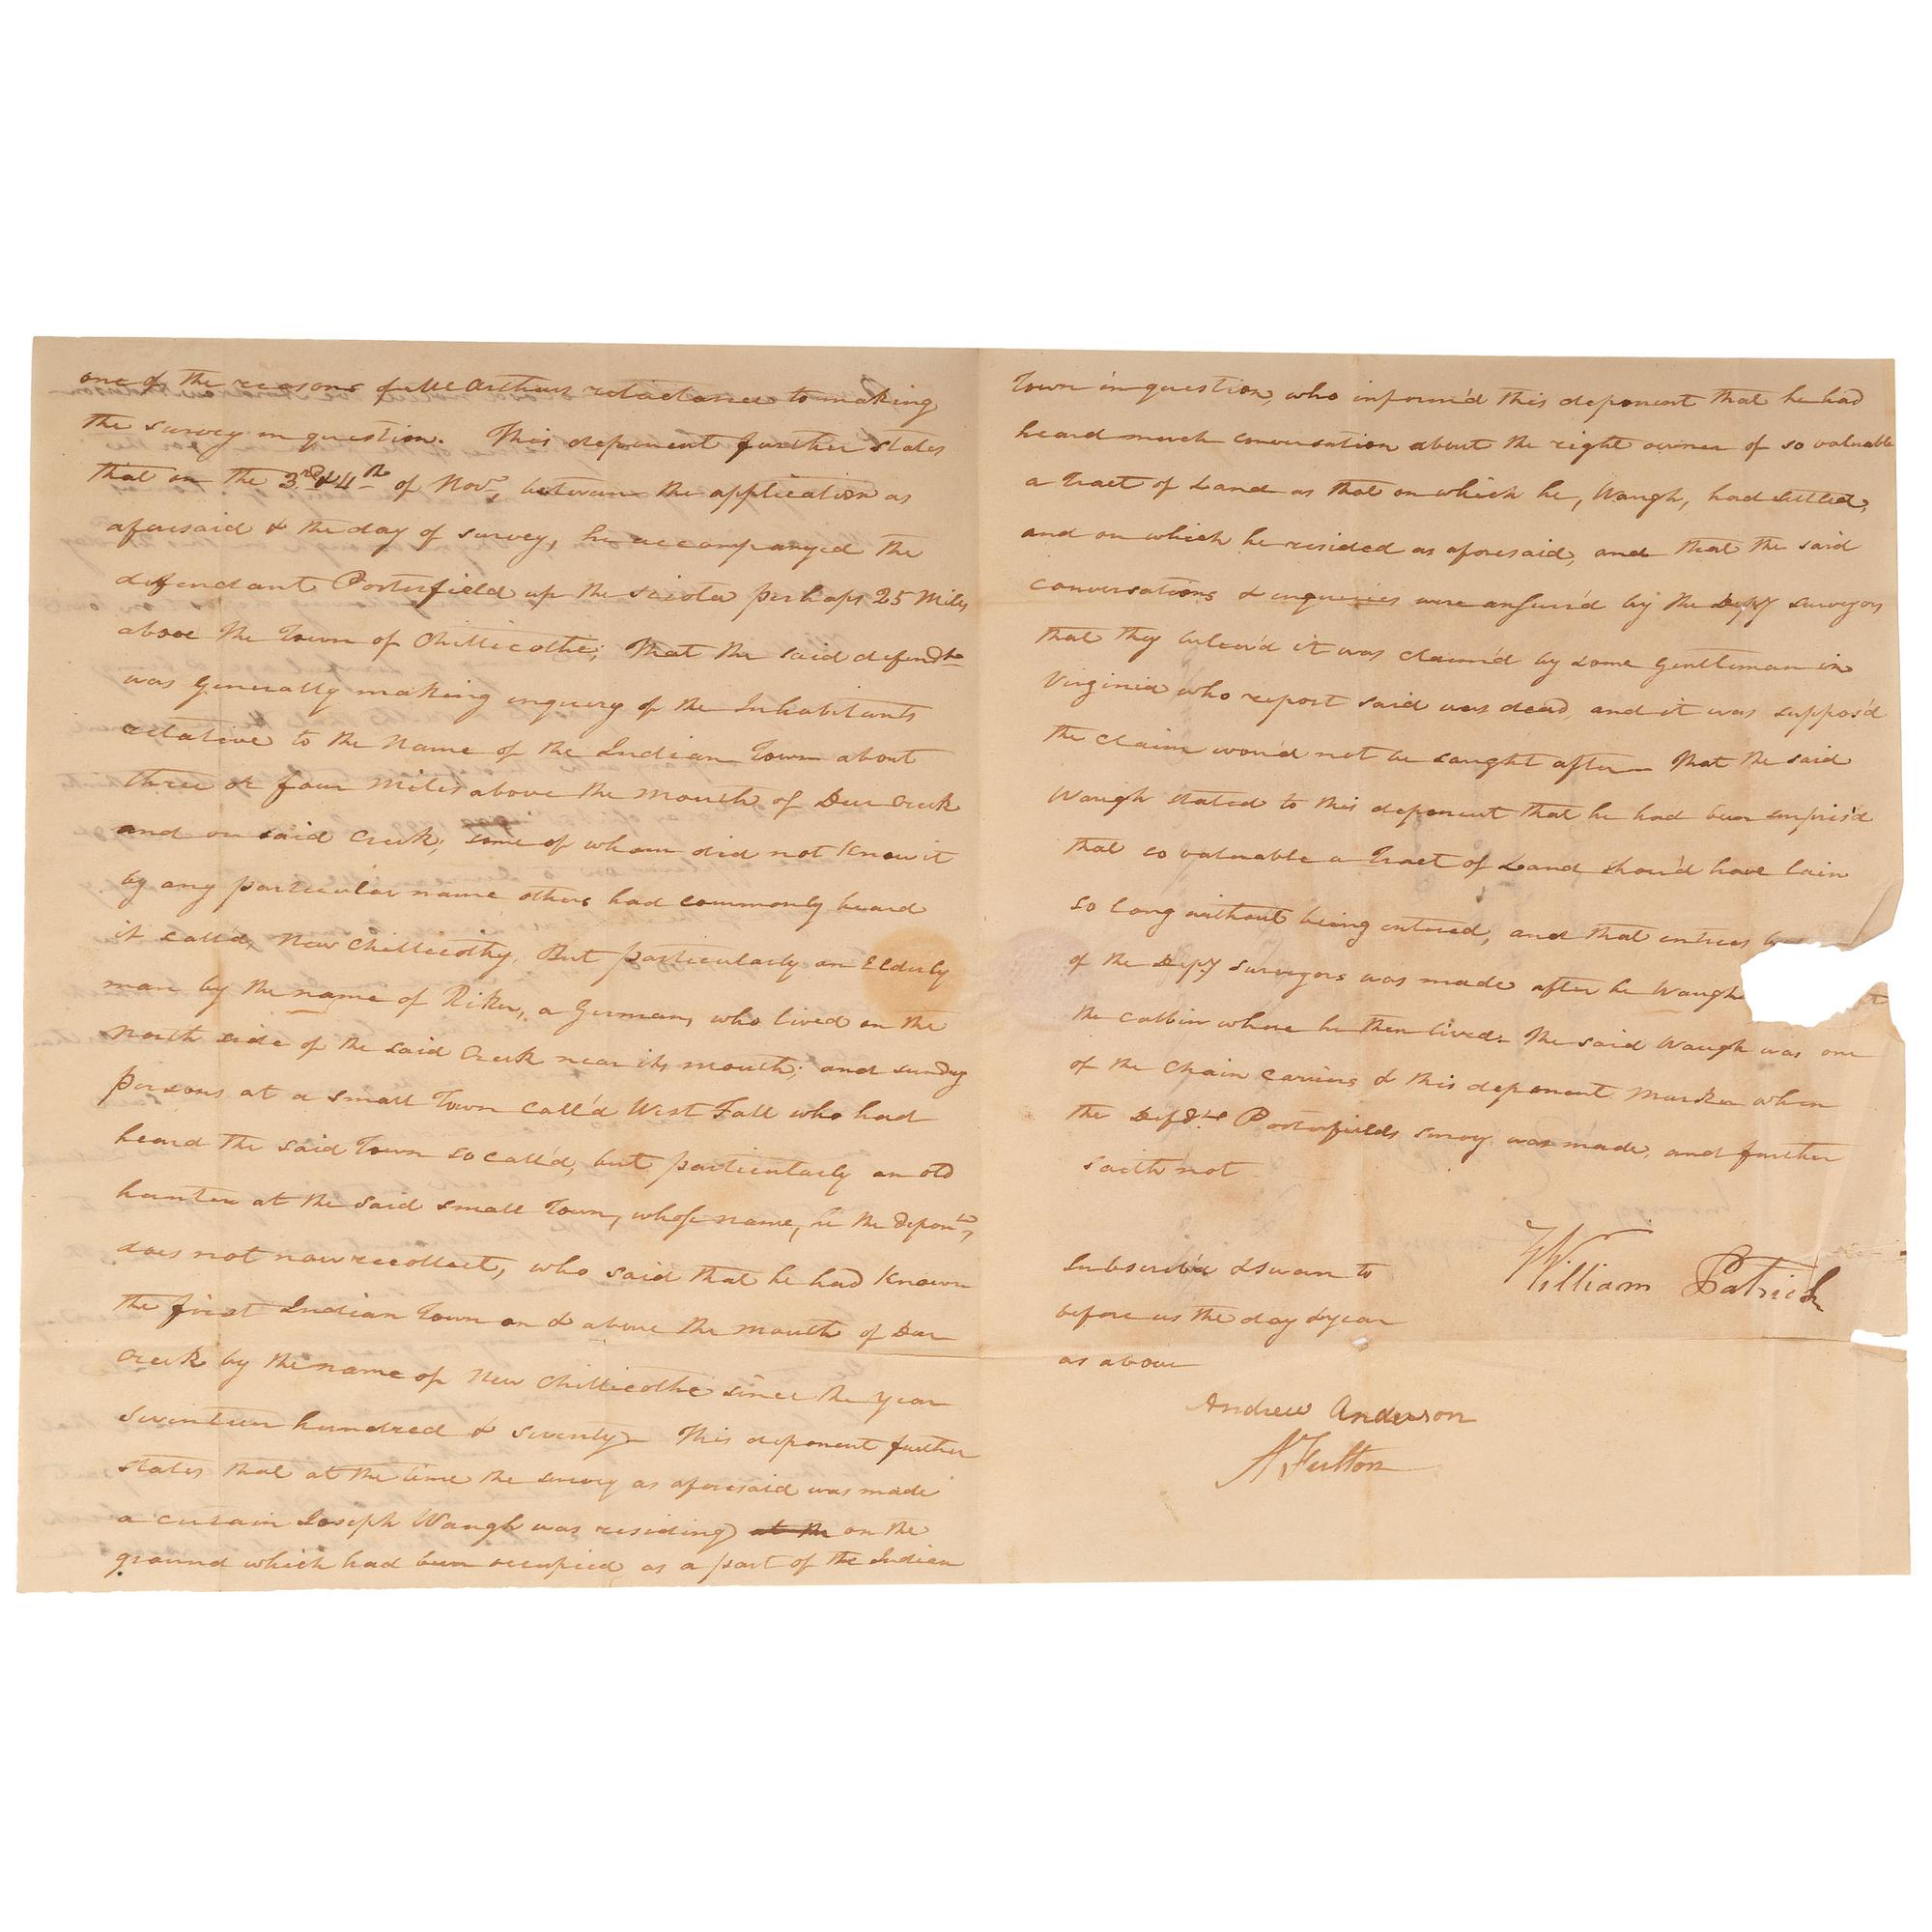 one of the reasons of McArthurs reluctance to making
the survey in question. This deponent further states
that on the 3rd & 4th of Novr, between the application as
aforesaid & the day of survey, he accompanyed the
deffendant Porterfield up the sciota perhaps 25 Miles
above the Town of Chillicothe; That the said defendt
was generally making inquery of the Inhabitants
relative to the name of the Indian Town about
three or four Miles above the mouth of Deer Creek
and on said Creek; some of whom did not Know it
by any particular name others had commonly heard
it call'd, New Chillicothy. But particularly an Elderly
man by the name of Riker, a German, who lived on the
North side of the said Creek near its mouth; and sundry
persons at a small Town call'd West Fall who had
heard the said Town so call'd, but particularly an old
hunter at the said small Town, whose name, he the deponts,
does not now recollect, who said that he had Known
the first Indian Town on & above the mouth of Deer
Creek by the name of New Chillicothe since the year
seventeen hundred & seventy— This deponent further
states that at the time the survey as aforesaid was made
a certain Joseph Waugh was residing at the on the
ground which had been occupied as a part of the Indian
Town in question, who inform'd this deponent that he had
heard much conversation about the right owner of so valuable
a Tract of Land as that on which he, Waugh, had settled,
and on which he resided as aforesaid, and that the said
conversations & inqueries were answer'd by the Depy surveyors
that they beleiv'd it was claim'd by some Gentleman in
Virginia who report said was dead, and it was suppos'd
the claim wou'd not be saught after— That the said
Waugh stated to this deponent that he had been surpris'd
that so valuable a Tract of Land shou'd have lain
so long without being entered, and that entries
of the Depy surveyors was made after he Waugh
the cabbin where he then lived. The said Waugh was one
of the Chain carriers & this deponent Marker when
the Defdts Porterfields survey was made, and further
saith not
William Patrick
Subscrib'd & sworn to
before us the day & year
as above
Andrew Anderson
A Fulton